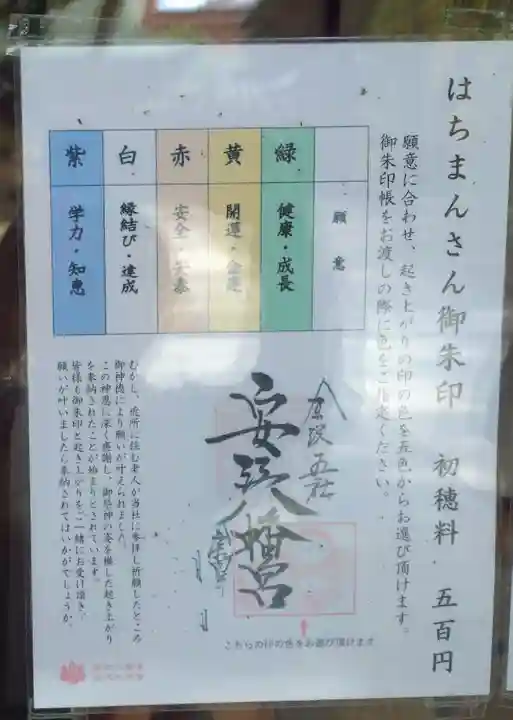 はちまんさん御朱印　初穂料　五百円
願意に合わせ、起き上がりの印の色を五色からお選び頂けます。
御朱印帳をお渡しの際に色をご指定ください。
願意
緑　健康・成長
黄　開運・金運
赤　安全・安泰
白　縁結び・達成
紫　学力・知恵
金沢五社
安江八幡宮
こちらの印の色をお選び頂けます
むかし、近所に住む老人が当社に参拝し祈願したところ
御神徳により願いが叶えられました。
この神恩に深く感謝し、御祭神の姿を模した起き上がり
を奉納されたことが始まりとされています。
皆様も御朱印と起き上がりをご一緒にお受け頂き、
願いが叶いましたら奉納されてはいかがでしょうか。